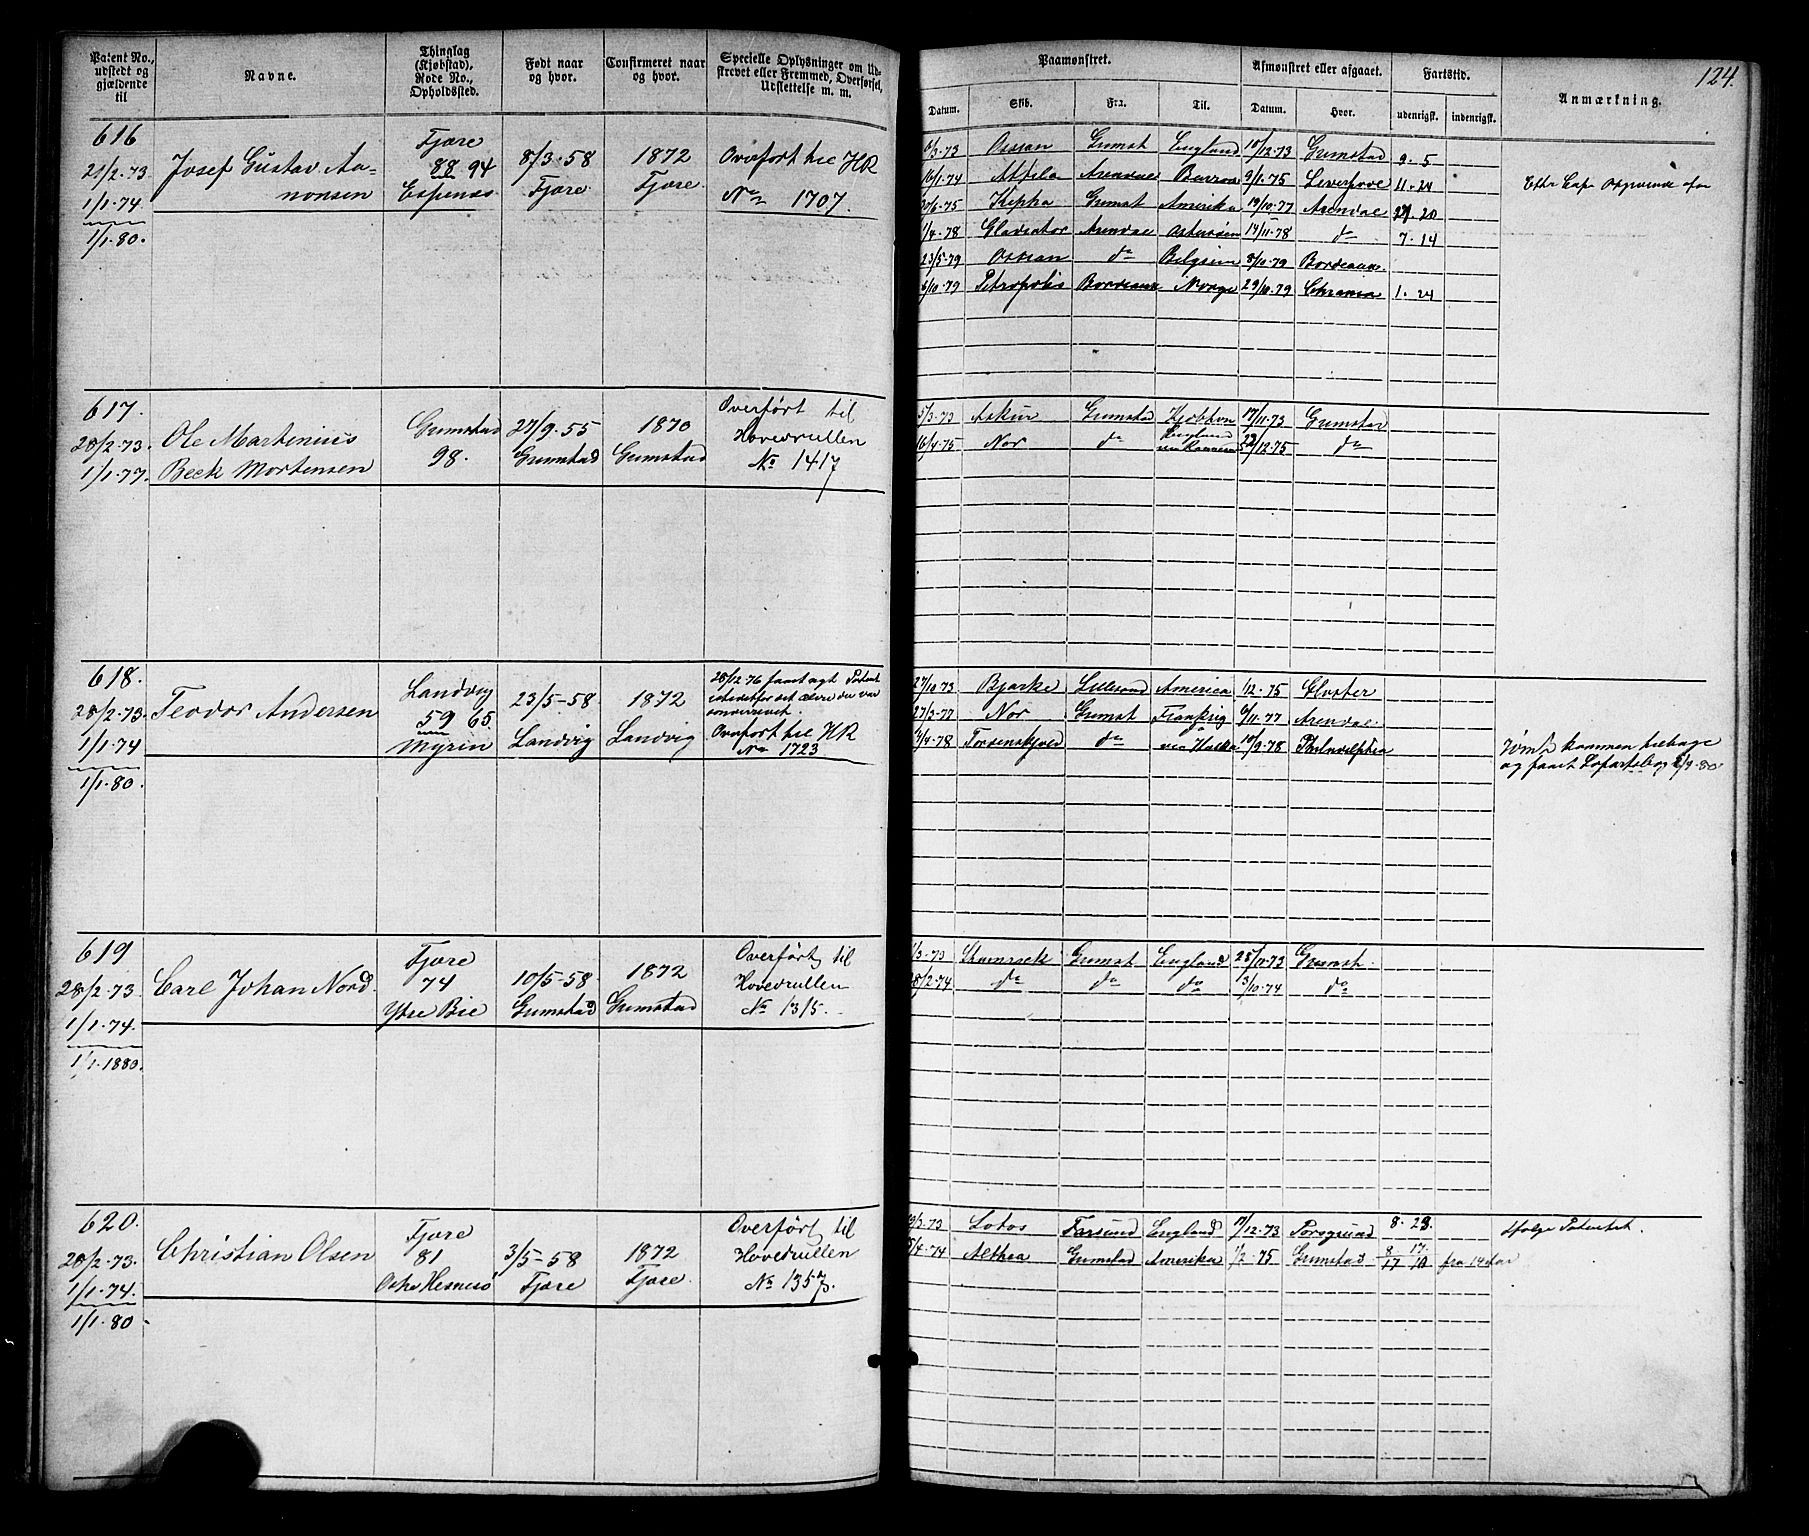 124.
Patent No., udstedt og gjældende til
Navne.
Thinglag (Kjøbstad), Rode No., Opholdssted.
Født naar og hvor.
Confirmeret naar og hvor.
Specielle Oplysninger om Udskrevet eller Fremmed, Overførsel, Udslettelse m. m.
Paamønstret.
Afmønstret eller afgaaet.
Fartstid.
Anmærkning.
Datum. Skib. Fra. Til. Datum. Hvor. udenrigsk. indenrigsk.
616
21/2.73
1/1.74
1/1.80.
Josef Gustav Aa-
nonsen
Fjære
88 94
Espenæs
8/3.58
Fjære
1872
Fjære.
Overført til HR
No 1707.
6/3.73 Ossian Grimst England 18/12.73 Grimstad 9.5
16/1.74 Attila Arendal 9/1.75 Liverpool 11.24
30/6.75 Kepha Grimst Amerika 19/10.77 Arendal 27.20
1/4.78 Gladiator Arendal Østersøen 14/11.78 do 7.14
23/5.79 Ossian do Belgien 8/10.79 Bordeaux.
6/10.79 Petropolis Bordeaux Norge 29/10.79 Chrania 1.24
Efter Cap Opgivende
617.
28/2.73.
1/1.77.
Ole Martinius
Beck Mortensen
Grimstad
98.
27/9.55
Grimstad
1870
Grimstad
Overført til
Hovedrullen
No 1417
5/3.73 Askur Grimstad Kjøbhvn 17/11.73 Grimstad
16/4.75 Nor do England 22/12.75 do
618.
28/2.73.
1/1.74
1/1.80.
Teodor Andersen
Landvig
59 65
Myrin
23/5-58
Landvig
1872
Landvig
28/2.76 faaet nyt Patent
istedetfor det ældre der var
Overført til HR
No 1723
27/10.73 Bjarke Lillesand America /12.75 Gloster
27/3.77 Nor Grimst Frankrig 6/11.77 Arendal.
4/4.78 Tordenskjold do 10/9.78 Philadelphia
Rømt, kommen tilbage
og faaet 2/9.80.
619
28/2.73
1/1.74.
1/1.1880.
Carl Johan Nord
Fjære
74
Ytre Bie
10/5-58
Grimstad
1872
Grimstad
Overført til
Hovedrullen
No 1315.
1/3.73 Skumsæk Grimst England 28/11.73 Grimst.
28/2.74 do do do 3/10.74 do
620.
28/2.73.
1/1.74.
1/1.80
Christian Olsen
Fjære
81
Østre Hesnesø
3/5-58
Fjære
1872
Fjære.
Overført til
Hovedrullen
No 1357.
Lotos Farsund England 17/12.73 Porsgrund 8.23.
5/4.74 Althea Grimstad Amerika 1/2.75 Grimstad 8/17 17/10 fra 14 Aar
Ifølge Patentet.